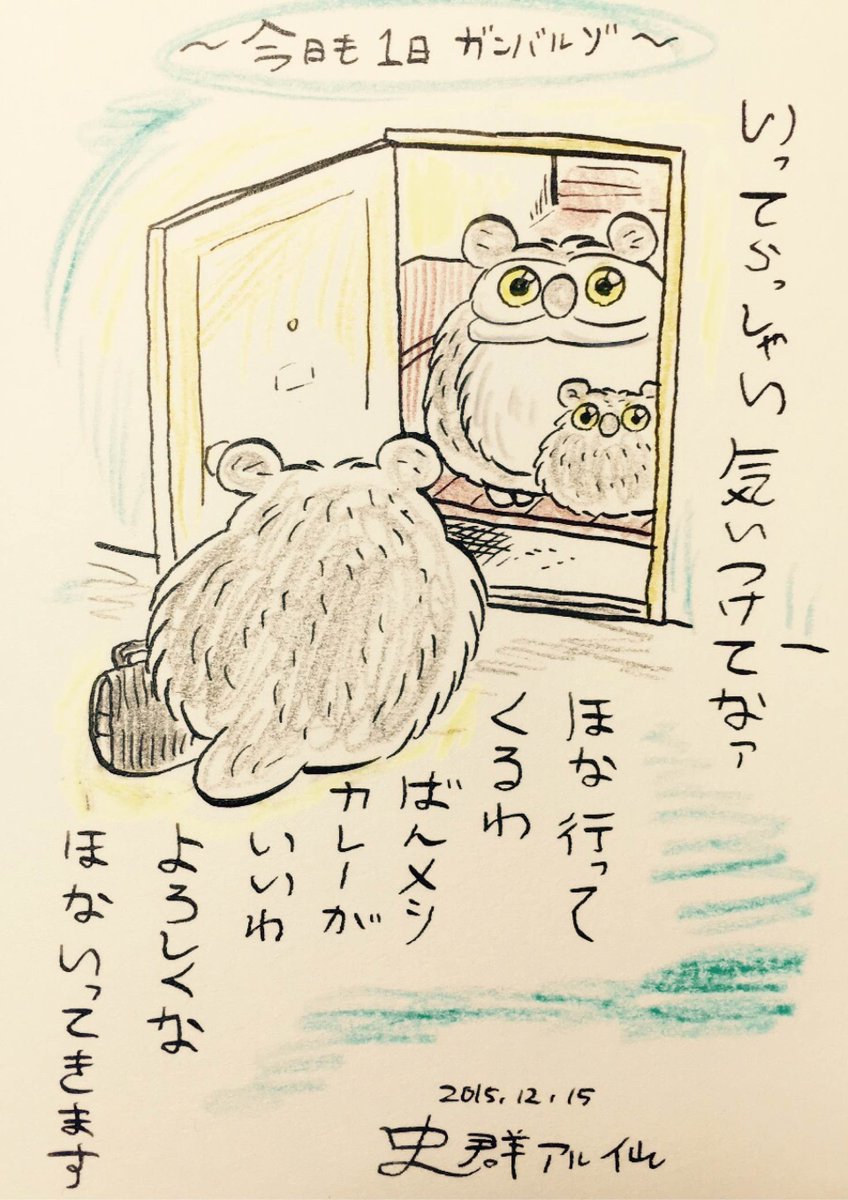 ～今日も1日 ガンバルゾ～
いってらっしゃい 気いつけてなァー
ほな 行って
くるわ
ばんメシ
カレーが
いいわ
よろしくな
ほな いってきます
2015.12.15
史群アル仙